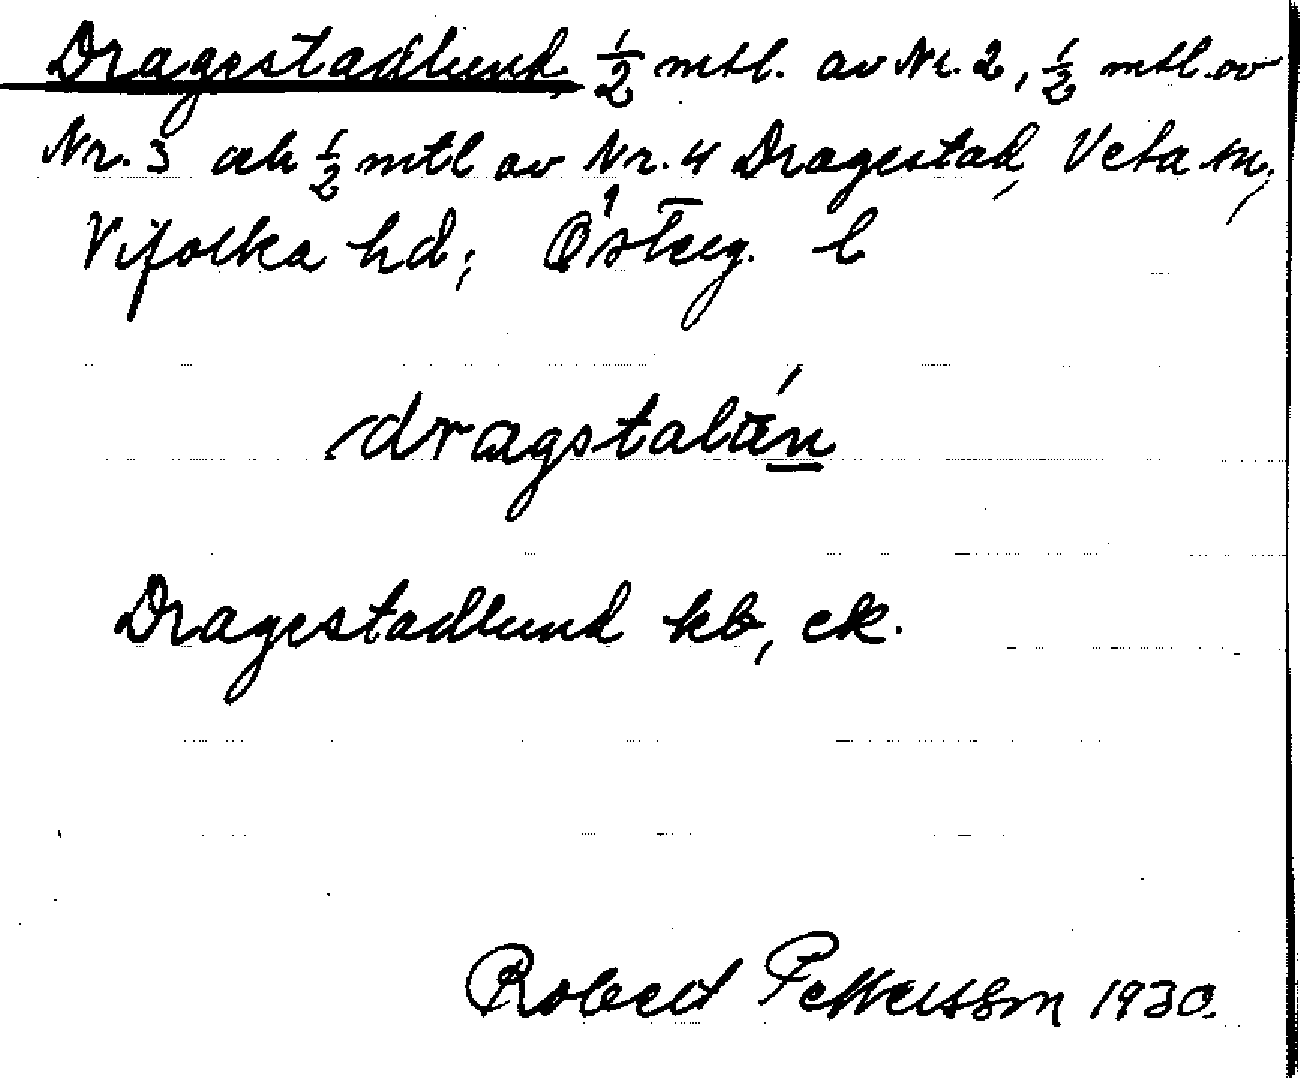 Dragestadlund, ½ mtl. av Nr. 2, ½ mtl. av
Nr. 3 och ½ mtl av Nr. 4 Dragestad, Veta sn,
Vifolka hd; Österg. l
Dragestadlund kb, ek.
Robert Pettersson 1930.